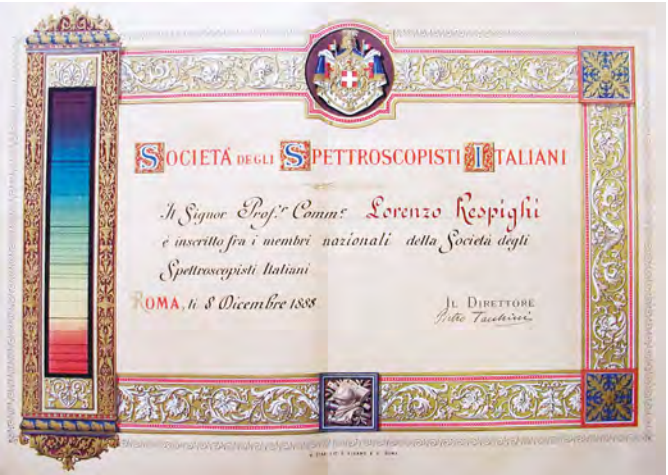 SOCIETÁ DEGLI SPETTROSCOPISTI ITALIANI
Il Signor Prof.r Comm.e Lorenzo Respighi
è inscritto fra i membri nazionali della Società degli
Spettroscopisti Italiani
ROMA, li 8 Dicembre 1888.
IL DIRETTORE
Pietro Tacchini